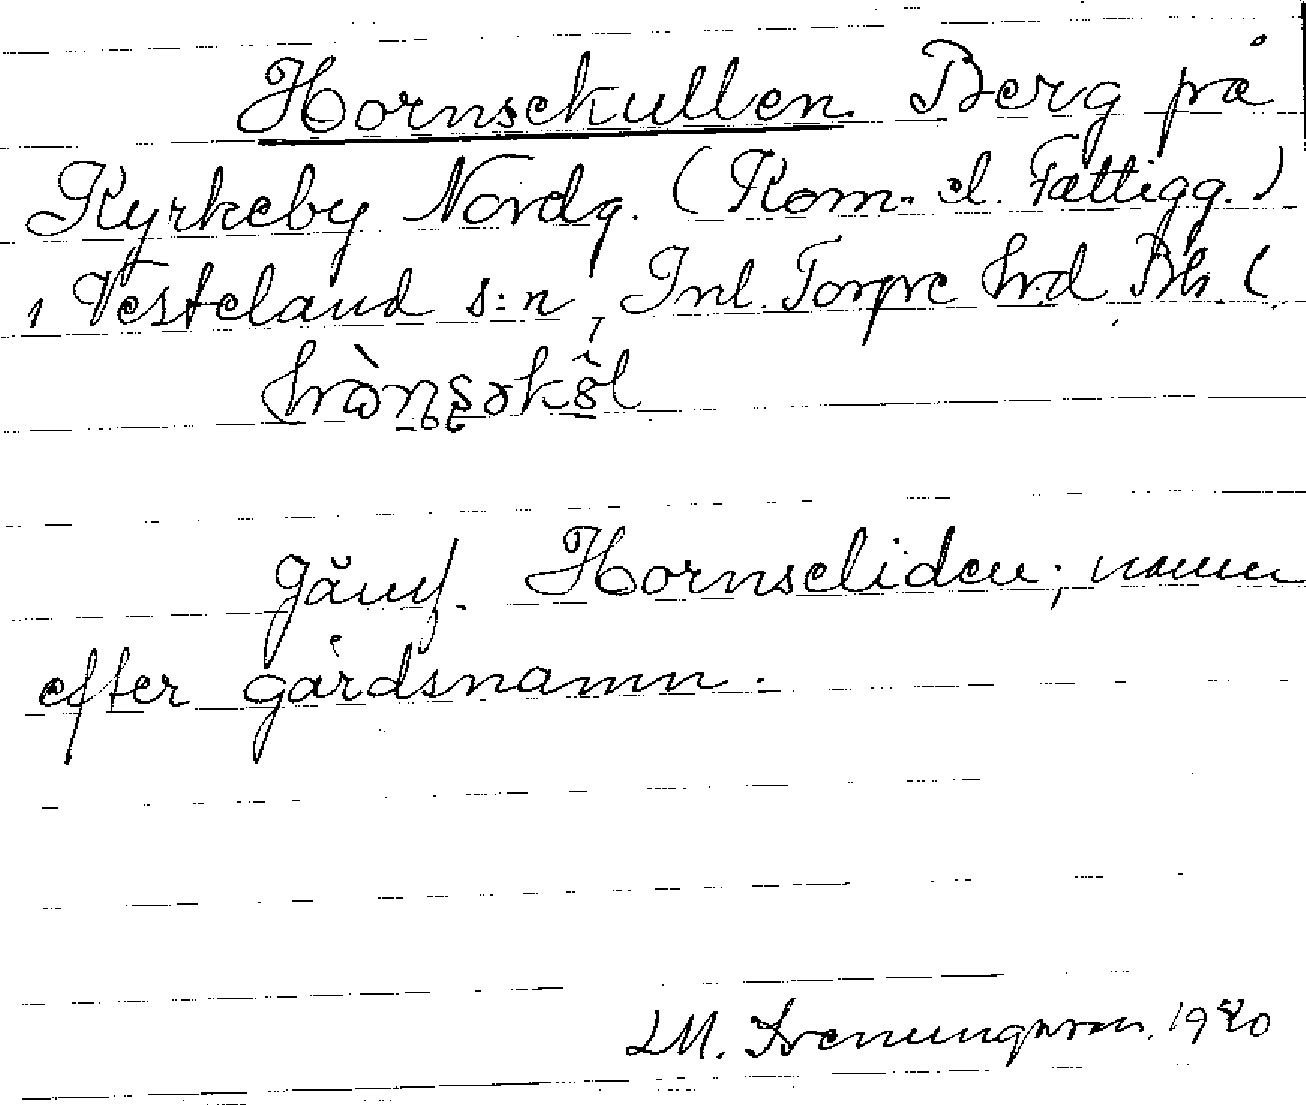 Hornsekullen. Berg på
Kyrkeby Nordg. (Kom- el. Fattigg.)
i Vesteland s:n, Inl. Torpe hrd Bh. (
hròn̥s̨əkôl
Jämf. Hornseliden; namn
efter gårdsnamn.
LM. Svenungsson. 1920